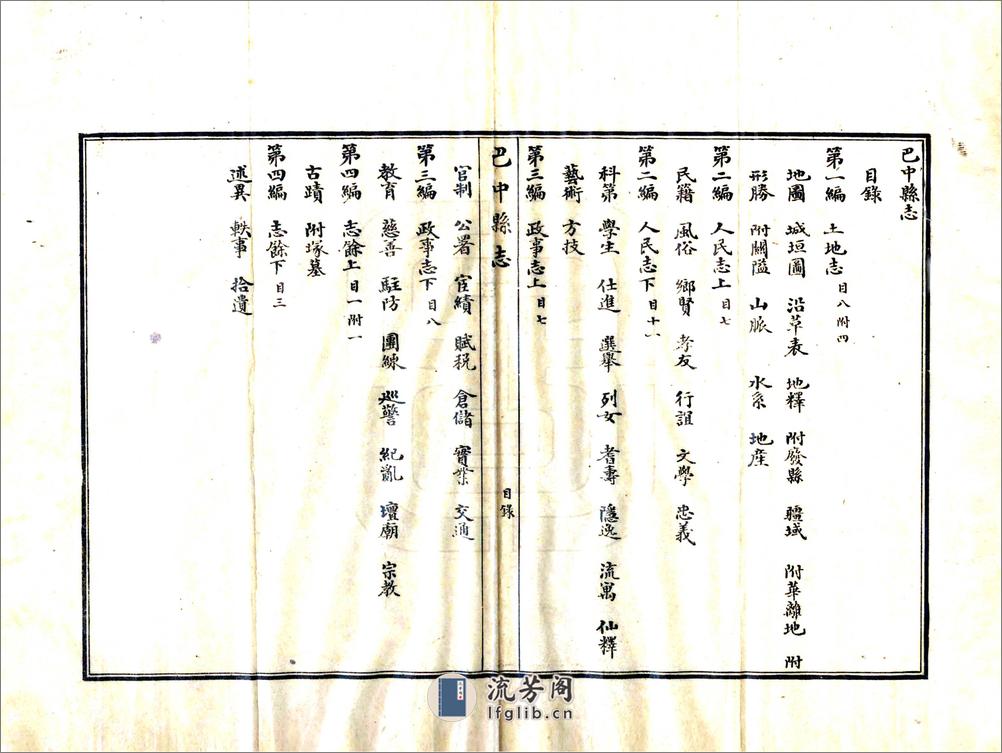 巴中縣志
目錄
第一編 土地志 目八附四
地圖 城垣圖 沿革表 地釋 附廢縣 疆域 附華離地 附
形勝 附關隘 山脈 水系 地產
第二編 人民志上 目七
民籍 風俗 鄉賢 孝友 行誼 文學 忠義
第二編 人民志下 目十一
科第 學生 仕進 選舉 列女 耆壽 隱逸 流寓 仙釋
藝術 方技
第三編 政事志上 目七
巴中縣志
目錄
官制 公署 宦績 賦稅 倉儲 實業 交通
第三編 政事志下 目八
教育 慈善 駐防 團練 巡警 紀亂 壇廟 宗教
第四編 志餘上 目一附一
古蹟 附塚墓
第四編 志餘下 目三
述異 軼事 拾遺
流芳阁
lfglib.cn